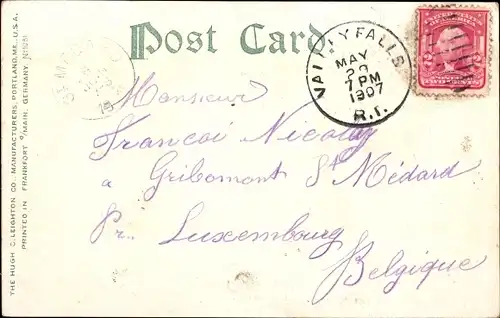 Post Card.
VALLEY FALLS
MAY
20
7 PM
1907
R.I.
UNITED STATES OF AMERICA
2 2
Monsieur
Francoi Nicolay
a Gribomont St Médard
Pr. Luxembourg
Belgique
THE HUGH C. LEIGHTON CO., MANUFACTURERS, PORTLAND, ME., U.S.A.
PRINTED IN FRANKFORT o/MAIN, GERMANY.